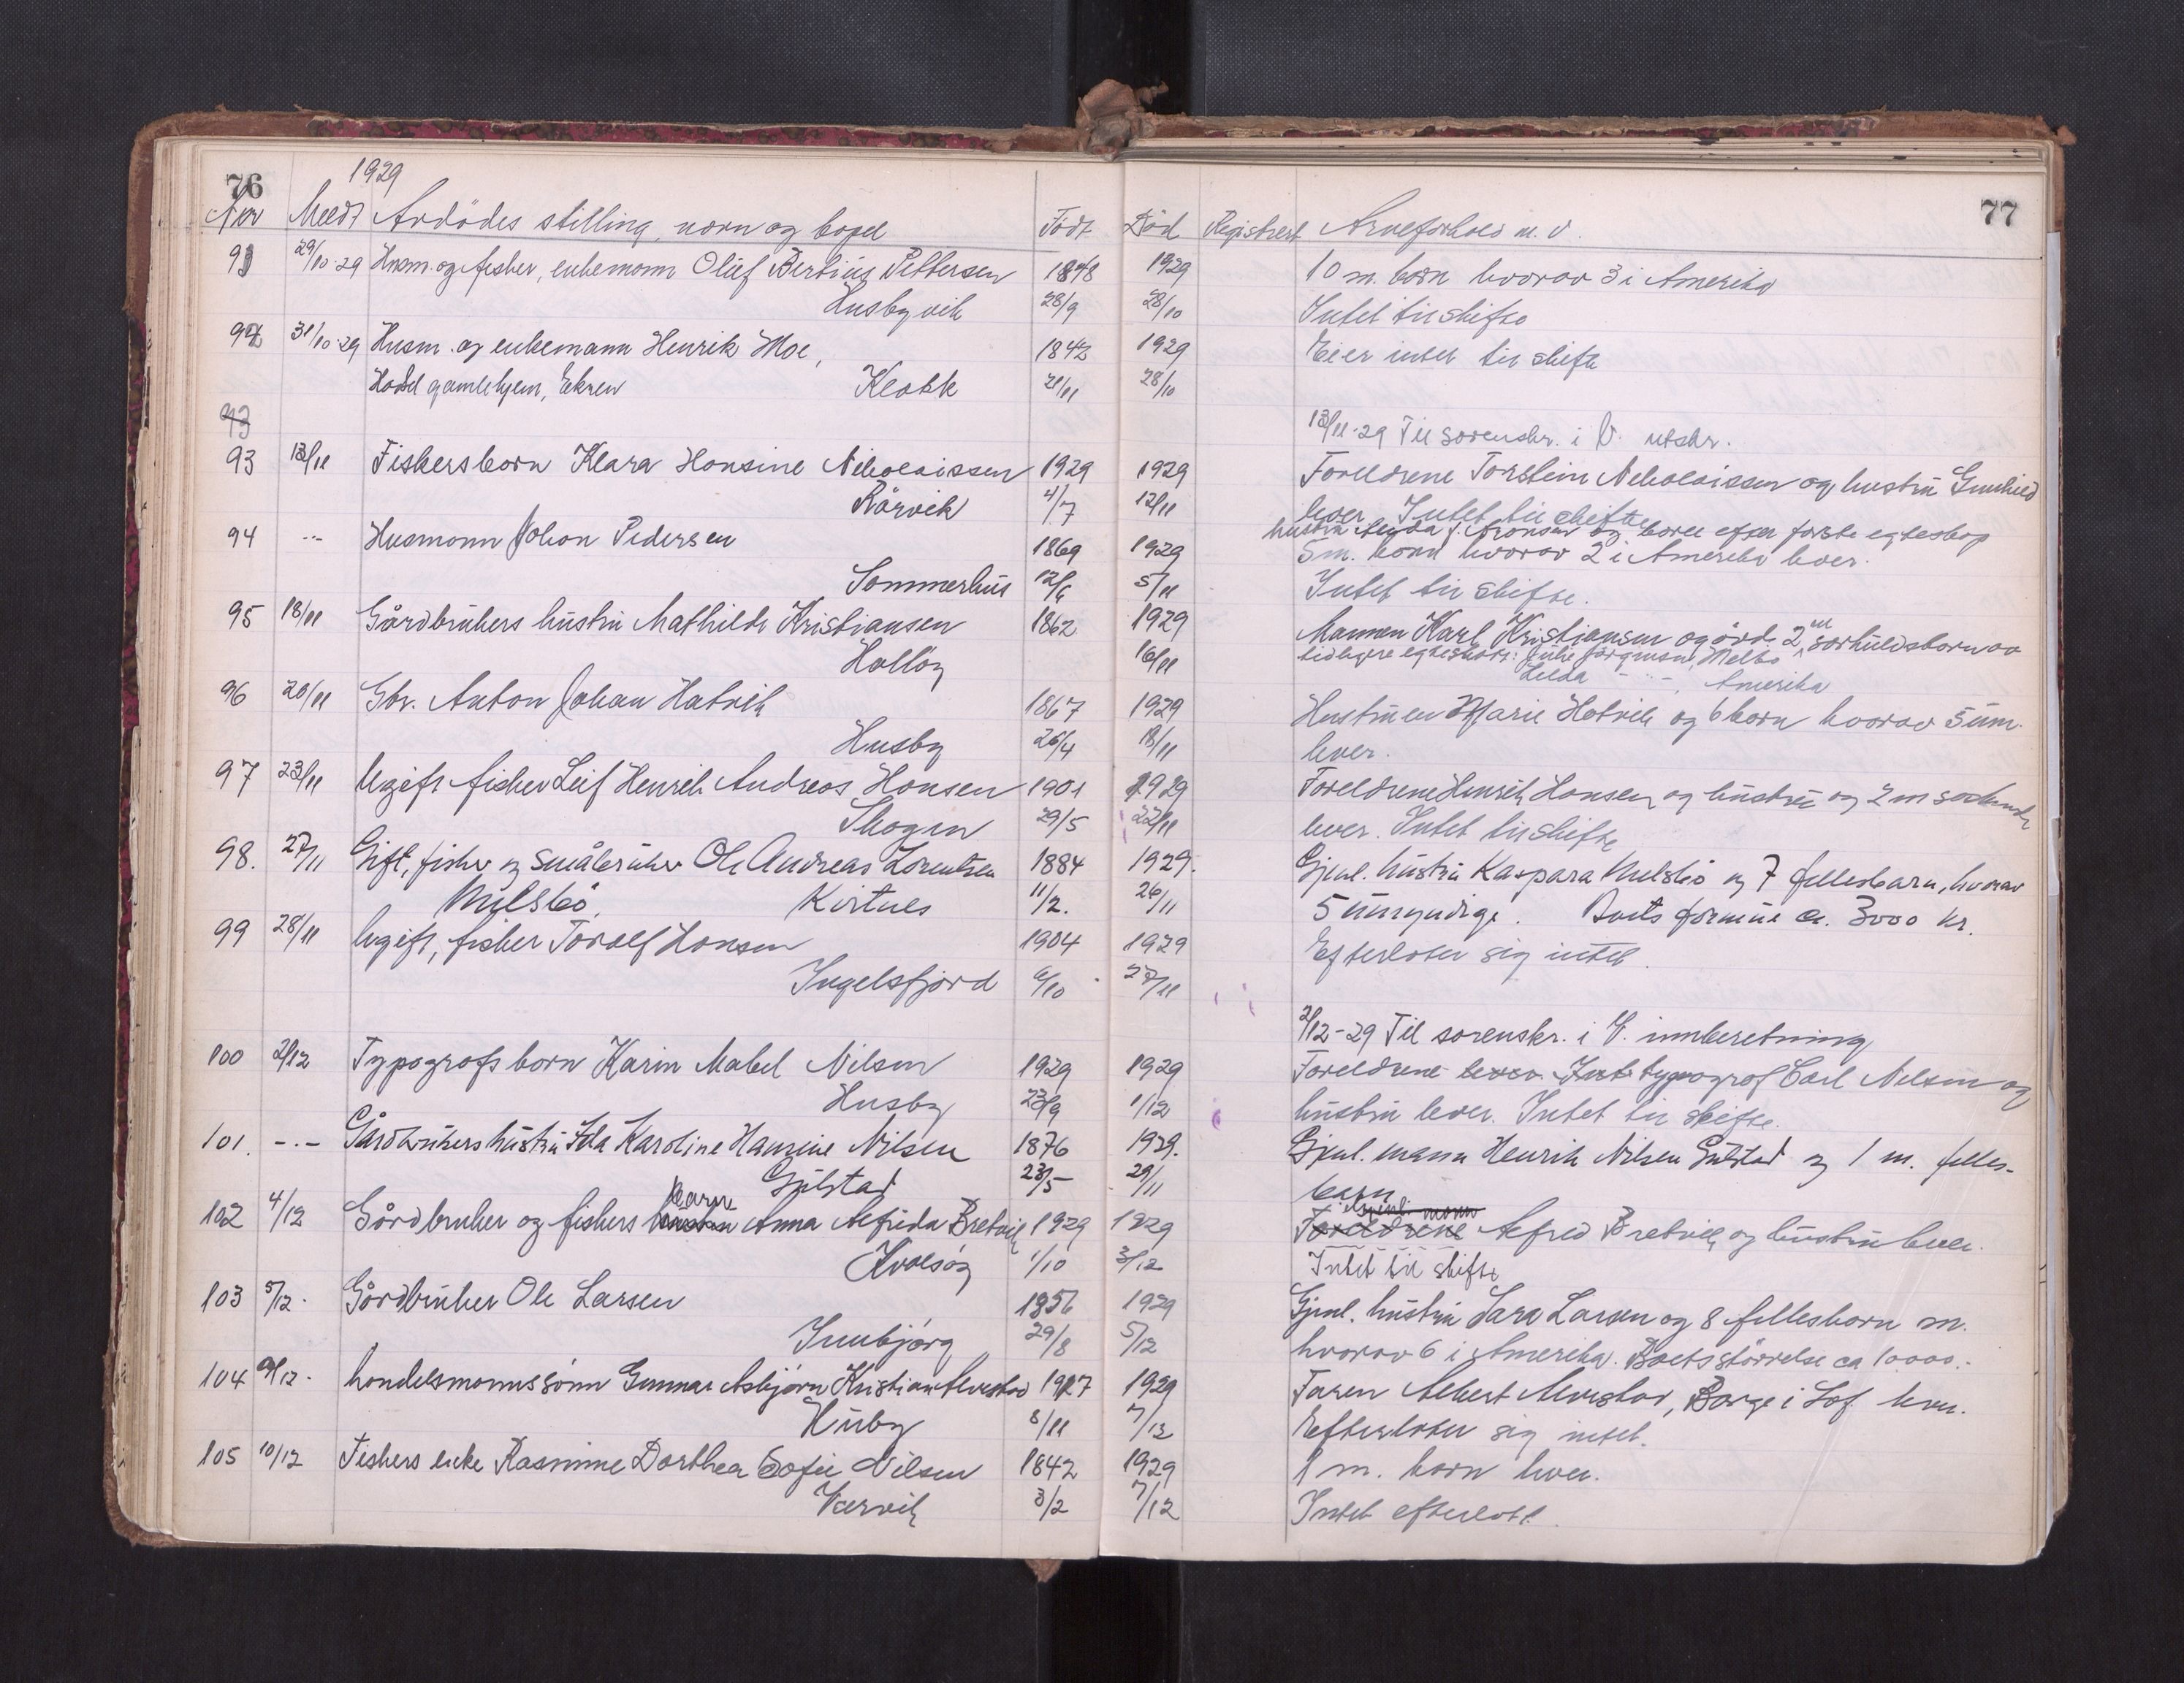 76
1929
Nr Meldt Avdødes stilling, navn og bopel Født Død Registrert Arveforhold m.v.
77
91 29/10-29 Husm. og fisker, enkemann Oluf Bertius Pettersen 1848 1929 10 m. barn hvorav 3 i Amerika
Husbyvik 28/9 28/10 Intet til skifte
92 31/10-29 Husm. og enkemann Henrik Moe, 1842 1929 Eier intet til skifte
Hadsel gamlehjem, Ekren Kleakk 21/11 28/10
93
13/11-29 Til sorenskr. i V. utskr.
93 13/11 Fiskersbarn Klara Hansine Nikolaissen 1929 1929 Foreldrene Torstein Nikolaissen og hustru Gunhild
Rårvik 4/7 12/11 lever. Intet til skifte
94 -"- Husmann Johan Pedersen 1869 1929 hustru f. Aronsen og barn efter første egteskap
5 m. barn hvorav 2 i Amerika lever.
Sommerhus 12/6 5/11 Intet til skifte.
95 18/11 Gårdbrukers hustru Mathilde Kristiansen 1862 1929 Mannen Karl Kristiansen og avdø. 2 m særkuldsbarn av
Halløy 16/11 tidligere egteskap: Julie Jørgensen, Melbo
Lilda -"-, Amerika
96 20/11 Gbr. Anton Johan Hatvik 1867 1929 Hustruen Marie Hatvik og 6 barn hvorav 5 um.
Husby 26/4 18/11 lever.
97 23/11 Ugift fisker Leif Henrik Andreas Hansen 1901 1929 Foreldrene Henrik Hansen og hustru og 2 m søskende
Skogen 29/5 22/11 lever. Intet til skifte
98. 27/11 Gift, fisker og småbruker Ole Andreas Lorentsen 1884 1929. Gjenl. hustru Kaspara Mulsbø og 7 fellesbarn, hvorav
Mulsbø. Kirtnes 11/2. 26/11 5 umyndige. Boets formue ca. 3000 kr.
99 28/11 Ugift, fisker Toralf Hansen 1904 1929 Efterlater sig intet.
Ingelsfjord 6/10 27/11
2/12-29 Til sorenskr. i V. innberetning
100 2/12 Typografs barn Karin Mabel Nilsen 1929 1929 Foreldrene lever. Intet typograf Carl Nilsen og
Husby 23/9 1/12 hustru lever. Intet til skifte.
101. -"- Gårdbrukers hustru Ida Karoline Hansine Nilsen 1876 1929. Gjenl. mann Henrik Nilsen Gulstad og 1 m. felles-
Gulstad 23/5 29/11 barn
102 4/12 Gårdbruker og fiskers hustru barn Anna Alfrida Bretvik 1929 1929 Foreldrene Gjenl. mann Alfred Bretvik og hustru lever.
Kvalsøy 1/10 3/12 Intet til skifte
103 5/12. Gårdbruker Ole Larsen 1856 1929 Gjenl. hustru Sara Larsen og 8 fellesbarn m.
Innbjørg 29/8 5/12 hvorav 6 i Amerika. Boets størrelse ca 10000.-
104 9/12. handelsmannssønn Gunnar Asbjørn Kristian Alvestad 1927 1929 Faren Albert Alvestad, Borge i Lof. lever.
Husby 8/11 7/12 Efterlater sig intet.
105 10/12 Fiskers enke Rasmine Dorthea Sofie Nilsen 1842 1929 1 m. barn lever.
Værvik 3/2 7/12 Intet efterlatt.